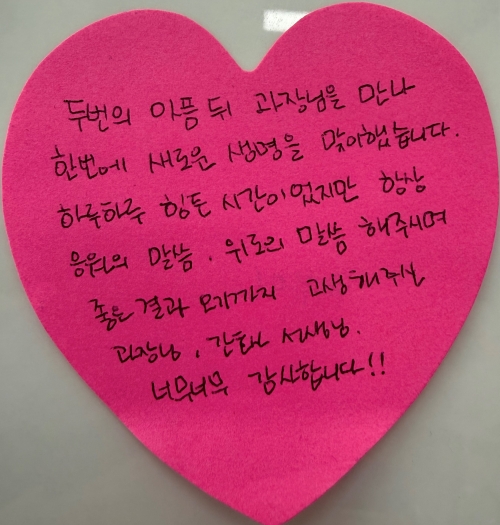 두번의 아픔 뒤 과장님을 만나
한번에 새로운 생명을 맞이했습니다.
하루하루 힘든 시간이었지만 항상
응원의 말씀, 위로의 말씀 해주시며
좋은결과 오기까지 고생해주신
과장님, 간호사 선생님.
너무너무 감사합니다!!